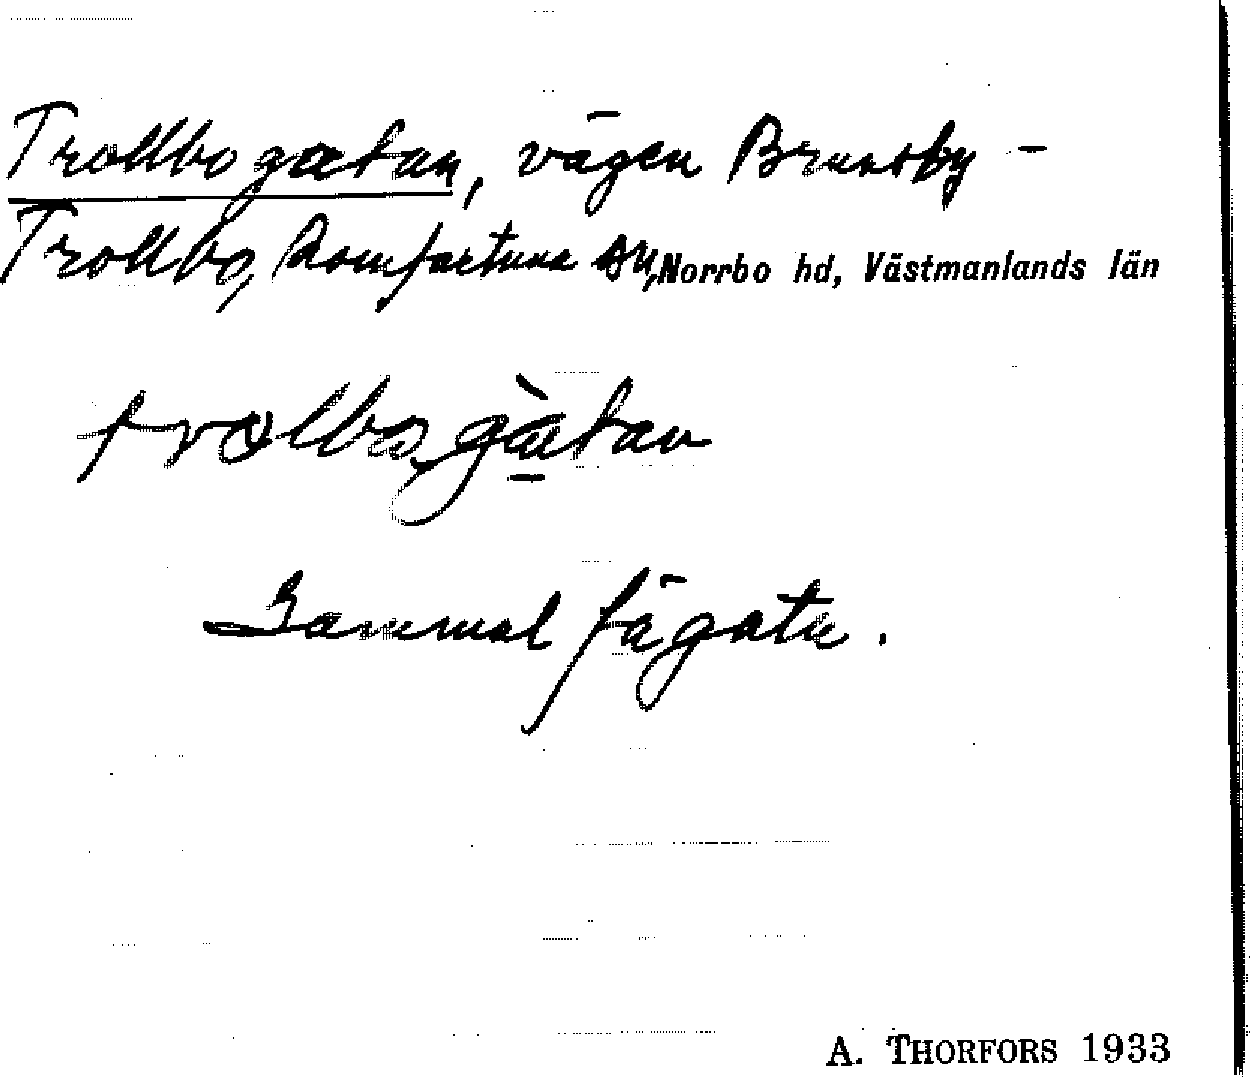 Trollbogatan, vägen Brunsby –
Trollbo, Romfartuna sn, Norrbo hd, Västmanlands län
trolbogàtan
Gammal fägata.
A. THORFORS 1933